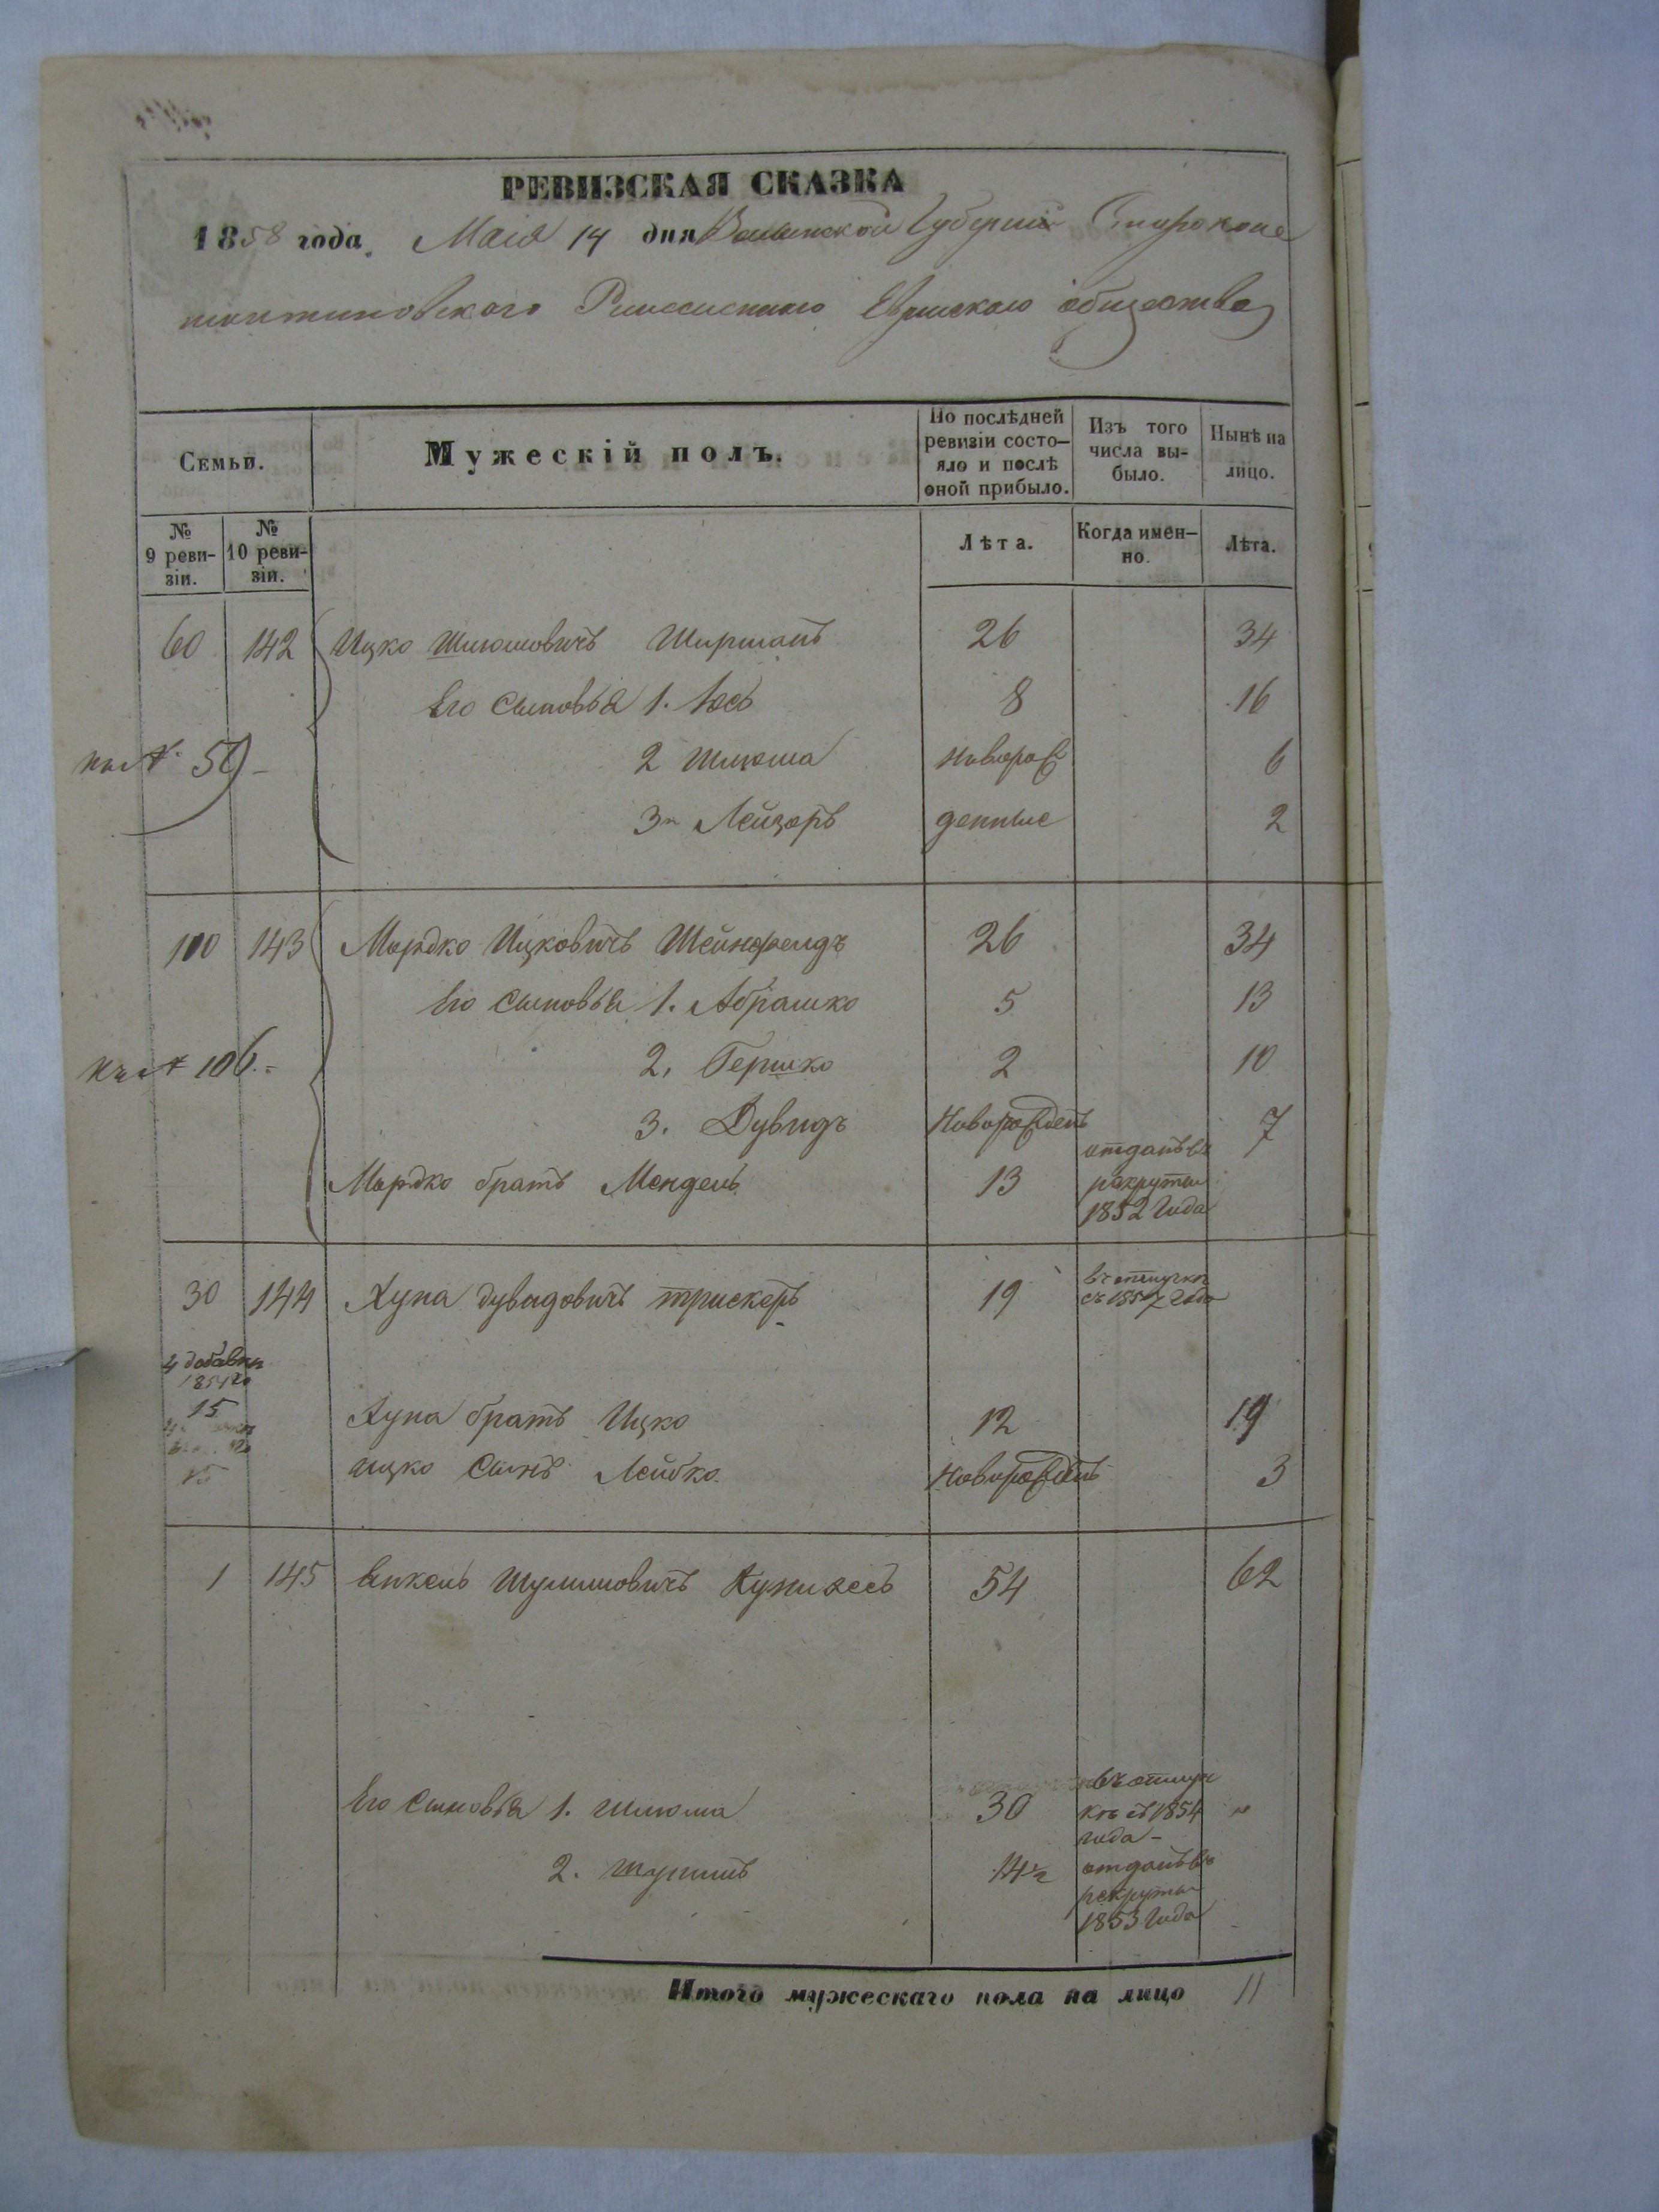 РЕВИЗСКАЯ СКАЗКА
1858 года, Маія 14 дня Волынской Губерніи Старокон
стантиновского Еврейскаго общества
Семьи.
Мужескій полъ.
По послѣдней ревизіи состо-
яло и послѣ
оной прибыло.
Изъ того
числа вы-
было.
Нынѣ на
лицо.
№
9 реви-
зіи.
№
10 реви-
зіи.
Лѣта.
Когда имен-
но.
Лѣта.
60 142 Ицко Шлюмовичъ 26 34
Его сыновья 1. Іось 8 16
59
2 Шлюма новорож 6
3 Лейзоръ денные 2
100 143 Мордко Ицковичъ Шейнфельдъ 26 34
Его сыновья 1. Абрашко 5 13
106
2. Гершко 2 10
3. Дувидъ Новорожденъ 7
Мордко братъ Мендель 13 отданъ въ
рекруты
1852 года
30 144 Хуна дувидовичъ трискеръ 19 въ отлучкѣ
съ 1857 года
15
Хуна братъ Ицко 12 19
ицко сынъ Лейбко Новорожденъ 3
15
1 145 Янкель 54 62
Его сыновья 1. шлюма 30 въ отлуч
кѣ съ 1854
года -
2. 14½ отданъ въ
рекруты
1853 года
Итого мужескаго пола на лицо 11